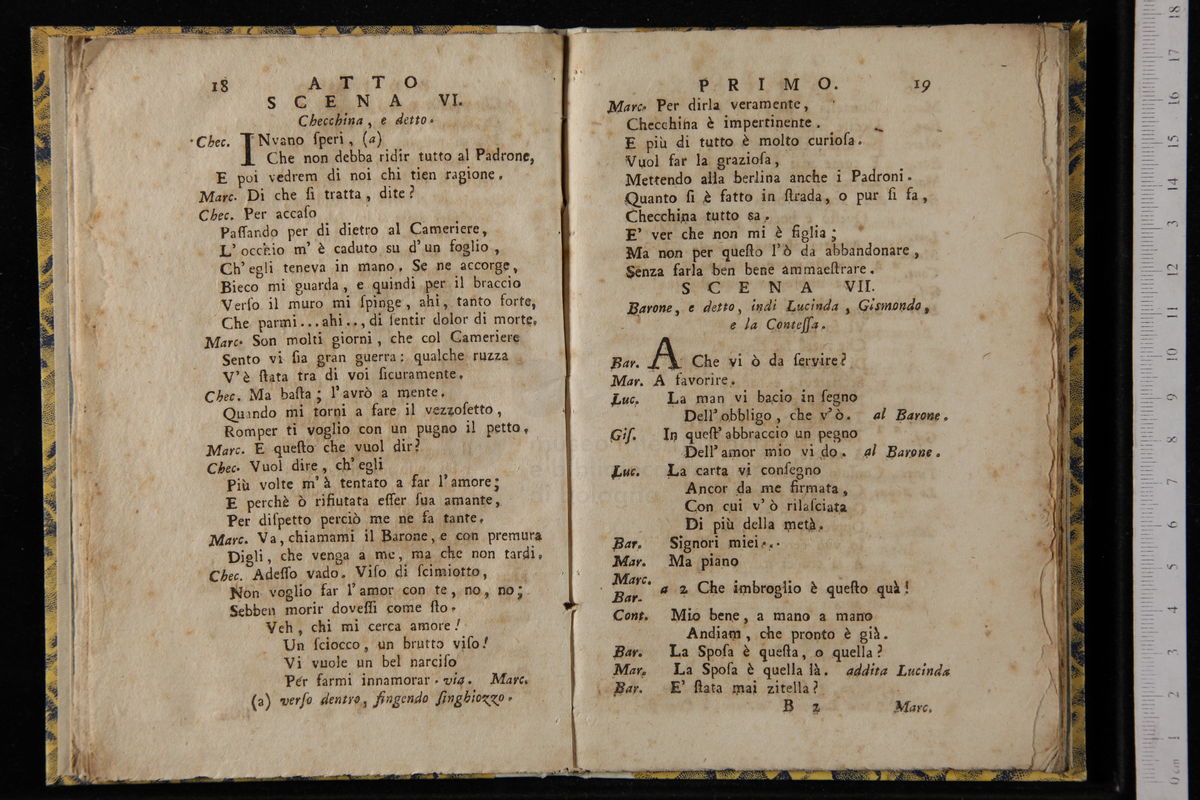 18 ATTO
SCENA VI.
Checchina, e detto.
Chec. INvano ſperi, (a)
Che non debba ridir tutto al Padrone,
E poi vedrem di noi chi tien ragione.
Marc. Di che ſi tratta, dite?
Chec. Per accaſo
Paſſando per di dietro al Cameriere,
L' occhio m' è caduto su d' un foglio,
Ch' egli teneva in mano. Se ne accorge,
Bieco mi guarda, e quindi per il braccio
Verſo il muro mi ſpinge, ahi, tanto forte,
Che parmi...ahi.., di ſentir dolor di morte.
Marc. Son molti giorni, che col Cameriere
Sento vi ſia gran guerra: qualche ruzza
V' è ſtata tra di voi ſicuramente.
Chec. Ma baſta; l' avrò a mente.
Quando mi torni a fare il vezzoſetto,
Romper ti voglio con un pugno il petto.
Marc. E queſto che vuol dir?
Chec. Vuol dire, ch' egli
Più volte m' à tentato a far l' amore;
E perchè ò rifiutata eſſer ſua amante,
Per diſpetto perciò me ne fa tante.
Marc. Va, chiamami il Barone, e con premura
Digli, che venga a me, ma che non tardi.
Chec. Adeſſo vado. Viſo di ſcimiotto,
Non voglio far l' amor con te, no, no;
Sebben morir doveſſi come ſto.
Veh, chi mi cerca amore!
Un ſciocco, un brutto viſo!
Vi vuole un bel narciſo
Per farmi innamorar. via. Marc.
(a) verſo dentro, fingendo ſinghiozzo.
PRIMO. 19
Marc. Per dirla veramente,
Checchina è impertinente.
E più di tutto è molto curioſa.
Vuol far la grazioſa,
Mettendo alla berlina anche i Padroni.
Quanto ſi è fatto in ſtrada, o pur ſi fa,
Checchina tutto sa.
E' ver che non mi è figlia;
Ma non per queſto l' ò da abbandonare,
Senza farla ben bene ammaeſtrare.
SCENA VII.
Barone, e detto, indi Lucinda, Gismondo,
e la Conteſſa.
Bar. A Che vi ò da ſervire?
Mar. A favorire.
Luc. La man vi bacio in ſegno
Dell' obbligo, che v' ò. al Barone.
Giſ. In queſt' abbraccio un pegno
Dell' amor mio vi do. al Barone.
Luc. La carta vi conſegno
Ancor da me firmata,
Con cui v' ò rilaſciata
Di più della metà.
Bar. Signori miei...
Mar. Ma piano
Marc.
Bar. a 2 Che imbroglio è queſto quà!
Cont. Mio bene, a mano a mano
Andiam, che pronto è già.
Bar. La Spoſa è queſta, o quella?
Mar. La Spoſa è quella là. addita Lucinda
Bar. E' ſtata mai zitella?
B 2 Marc.